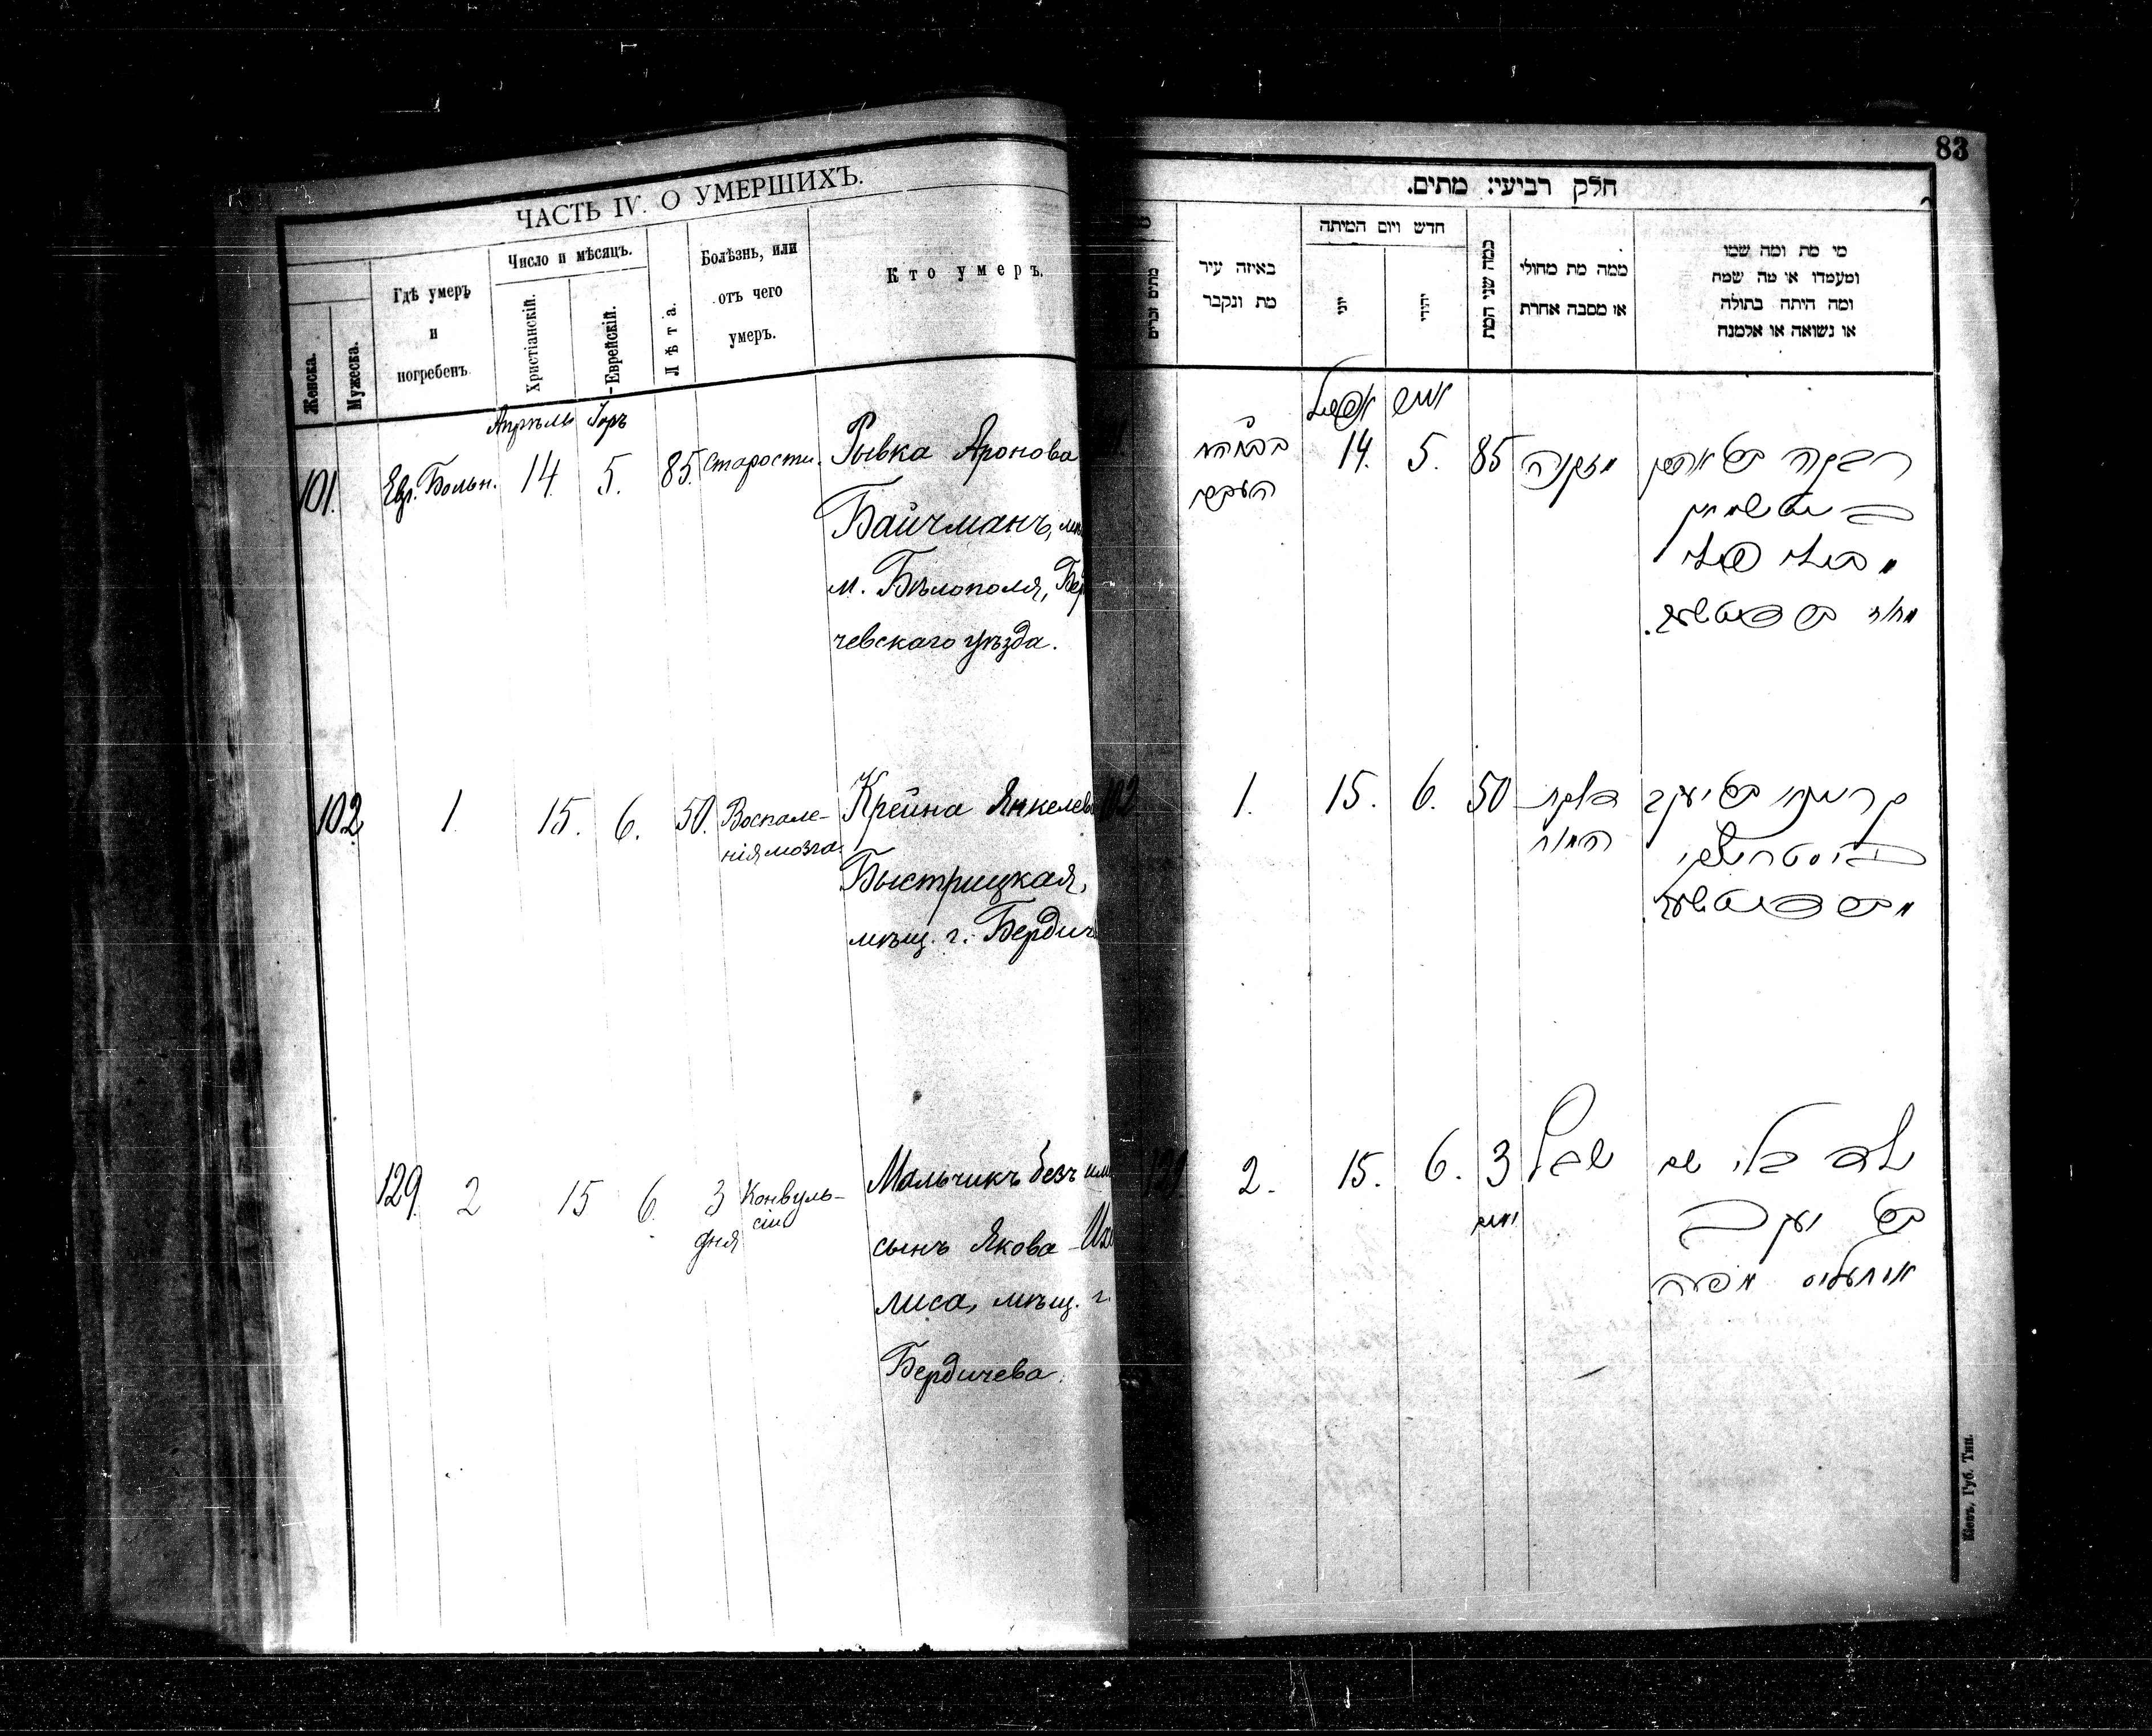 ЧАСТЬ IV. О УМЕРШИХЪ.
Женска.
Мужеска.
Гдѣ умеръ
и
погребенъ
Число и мѣсяцъ.
Христіанскій.
Еврейскій.
Лѣта.
Болѣзнь, или
отъ чего
умеръ.
Кто умеръ.
Апрѣль Іоръ
101. Евр. Больн. 14 5. 85. Старости. Рывка Аронова
Байчманъ,
м. Бѣлополя, Бер
чевскаго уѣзда.
102 1. 15. 6. 50. Воспале-
нія мозга
Крейна Янкелев
Быстрицкая,
мѣщ. г. Бердич
129. 2 15 6. 3
дня
Конвуль-
сіи
Мальчикъ безъ им
сынъ Якова Их
лиса, мѣщ. г.
Бердичева.
83
חלק רביעי: מתים.
מתים זכרים
באיזה עיר
מת ונקבר
חדש ויום המיתה
יוני
יהודי
כמה שני המת
ממה מת מחולי
או מסבה אחרת
מי מת ומה שמו
ומעמדו או מה שמה
ומה היתה בתולה
או נשואה או אלמנה
14. 5. 85 מזקנה רבקה בת אהרן
102 1. 15. 6. 50 דלקת
המוח
קריינא בת יעקב
129 2. 15. 6. 3
ימים
שבץ
ילד בלי שם
בן יעקב
Кіевъ, Губ. Тип.